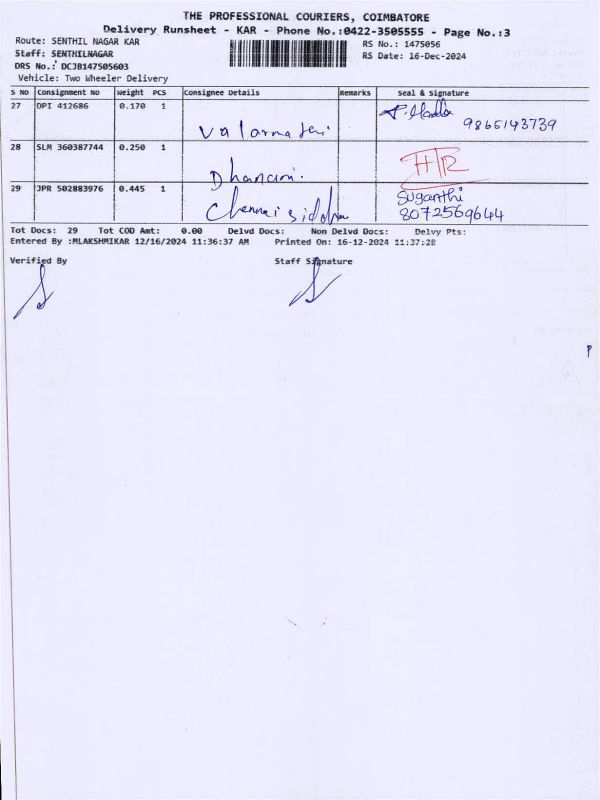 THE PROFESSIONAL COURIERS, COIMBATORE
Delivery Runsheet - KAR - Phone No.:0422-3505555 - Page No.:3
Route: SENTHIL NAGAR KAR RS No.: 1475056
Staff: SENTHILNAGAR RS Date: 16-Dec-2024
DRS No.: DCJB147505603
Vehicle: Two Wheeler Delivery
S No Consignment No Weight PCS Consignee Details Remarks Seal & Signature
27 DPI 412686 0.170 1 Valarmathi 9865143739
28 SLM 360387744 0.250 1 HR
29 JPR 502883976 0.445 1 Chennai Suganthi
8072569644
Tot Docs: 29 Tot COD Amt: 0.00 Delvd Docs: Non Delvd Docs: Delvy Pts:
Entered By :MLAKSHMIKAR 12/16/2024 11:36:37 AM Printed On: 16-12-2024 11:37:28
Verified By Staff Signature